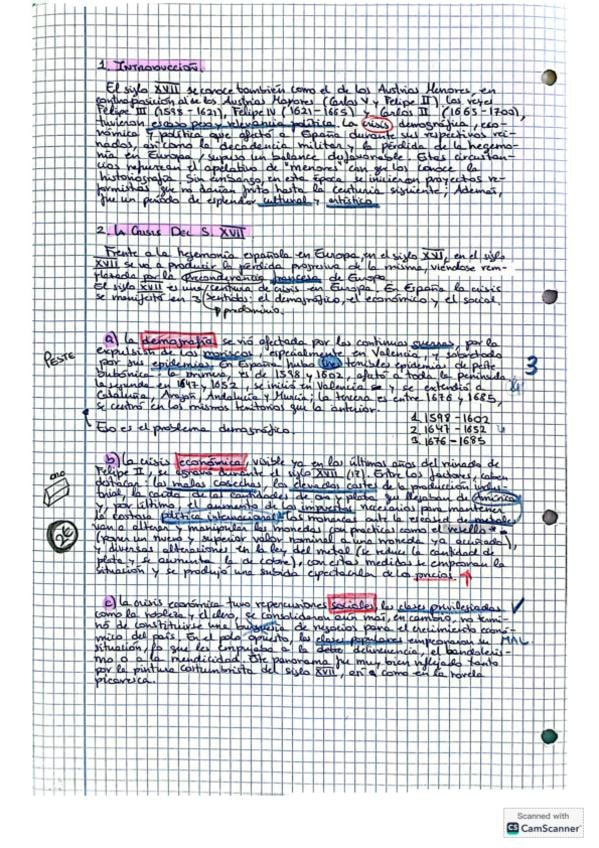 1. INTRODUCCIÓN.
El siglo XVII se conoce también como el de los Austrias Menores, en
contraposición al de los Austrias Mayores (Carlos V y Felipe II). Los reyes
Felipe III (1598-1621), Felipe IV (1621-1665) y Carlos II (1665-1700),
tuvieron escaso peso y relevancia política. La crisis demográfica, eco-
nómica y política que afectó a España durante sus respectivos rei-
nados, así como la decadencia militar y la pérdida de la hegemo-
nía en Europa, supuso un balance desfavorable. Estas circustan-
cias el apelativo de "menores" con que los conoce la
historiografía. Sin embargo, en esta época se iniciaron proyectos re-
formistas que no darían fruto hasta la centuria siguiente; Además,
fue un período de esplendor cultural y artístico.
2. La Crisis Del S. XVII
Frente a la hegemonía española en Europa, en el siglo XVI, en el siglo
XVII se va a producir la pérdida progresiva de la misma, viéndose rem-
plazada por la Preponderancia francesa de Europa.
El siglo XVII es una centuria de crisis en Europa. En España la crisis
se manifestó en 3 sentidos: el demográfico, el económico y el social.
predominio.
a) La demografía se vió afectada por las continuas guerras, por la
expulsión de los moriscos, especialmente en Valencia, y sobretodo
por sus epidemias. En España hubo terribles epidemias de peste
PESTE
3
bubónica: la primera, es de 1598 y 1602, afectó a toda la península
la segunda en 1647 y 1652, se inició en Valencia y se extendió a
Cataluña, Aragón, Andalucía y Murcia; la tercera es entre 1676 y 1685,
se centró en los mismos territorios que la anterior.
1. 1598-1602
Eso es el problema demográfico.
2. 1647-1652
3. 1676-1685
b) La crisis económica, visible ya en los últimos años del reinado de
Felipe II, se agravó durante el siglo XVII (17). Entre los factores, caben
destacar: las malas cosechas, los elevados costes de la producción indus-
oro
trial, la caída de las cantidades de oro y plata que llegaban de América
y, por último, el aumento de los impuestos necesarios para mantener
la costosa política internacional. Los monarcas ante la escasez de metales
van a alterar y manipular las monedas con prácticas como el resello
(poner un nuevo y superior valor nominal a una moneda ya acuñada),
2€
y diversas alteraciones en la ley del metal (se reduce la cantidad de
plata y se aumenta la de cobre), con estas medidas se empeoran la
situación y se produjo una subida espectacular de los precios. ↑
c) La crisis económica tuvo repercusiones sociales, las clases privilegiadas
como la nobleza y el clero, se consolidaron aún más; en cambio, no termi-
nó de constituirse una burguesía de negocios para el crecimiento econó-
mico del país. En el polo opuesto, las clases populares empeoraron su MAL
situación, lo que les empujaba a la delincuencia, el bandoleris-
mo o a la mendicidad. Este panorama fue muy bien reflejado tanto
por la pintura costumbrista del siglo XVII, como en la novela
picaresca.
Scanned with
CS CamScanner